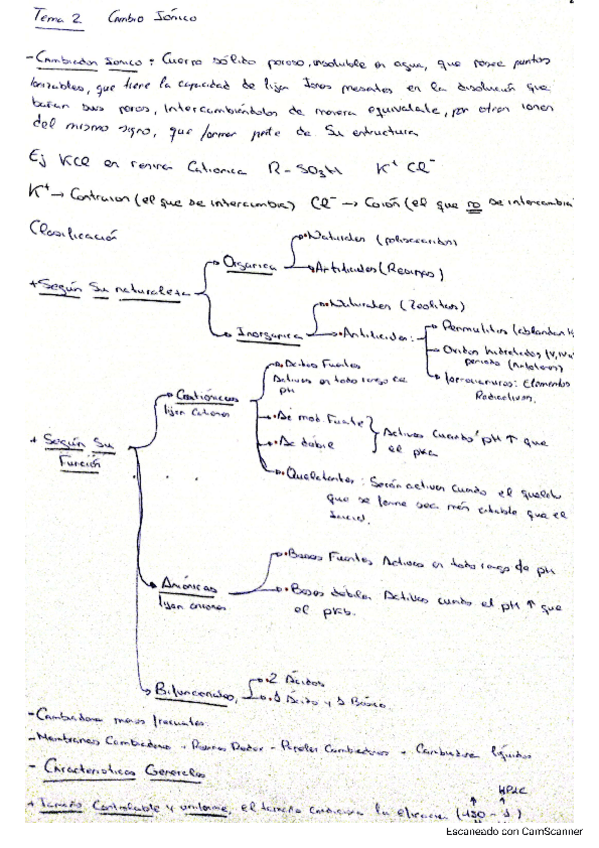 Tema 2 Cambio Iónico
- Cambiador Ionico : Cuerpo sólido poroso, insoluble en agua, que posee puntos
ionizables, que tiene la capacidad de fijar Iones presentes en la disolución que
bañan sus poros, Intercambiándolos de manera equivalente, por otros iones
del mismo signo, que forman parte de Su estructura
Ej KCl en resina Cationica R-SO3H K+ Cl-
K+ → Contraion (el que se intercambia) Cl- → Coión (el que no se intercambia
Clasificación
Naturales (polisacaridos)
Organica
Artificiales (Resinas)
+ Según Su naturaleza
Naturales (Zeolitas)
Inorganica
Artificiales :
Permutitas (ablandan
Oxidos hidratados (
periodo
ferrocianuros : Elementos
Radiactivos.
Acidos Fuertes
Activos en todo rango de
pH
Catiónicos
fijan Cationes
Ac mod. Fuerte
Ac debil
Activos cuando pH ↑ que
el pka
+ Según Su
Función
Quelatantes : Serán activos cuando el quelato
que se forme sea más estable que el
inicial.
Aniónicas
fijan aniones
Bases Fuertes Activos en todo rango de pH
Bases débiles Activas cuando el pH ↑ que
el pkb.
Bifuncionales
2 Ácidos
1 Ácido y 1 Básico.
- Cambiadores menos frecuentes
- Membranas Cambiadoras - Papeles Cambiadores + Cambiadores líquidos
- Características Generales
HPLC
+ Tamaño Controlable y uniforme, el tamaño condiciona la eficacia
Escaneado con CamScanner